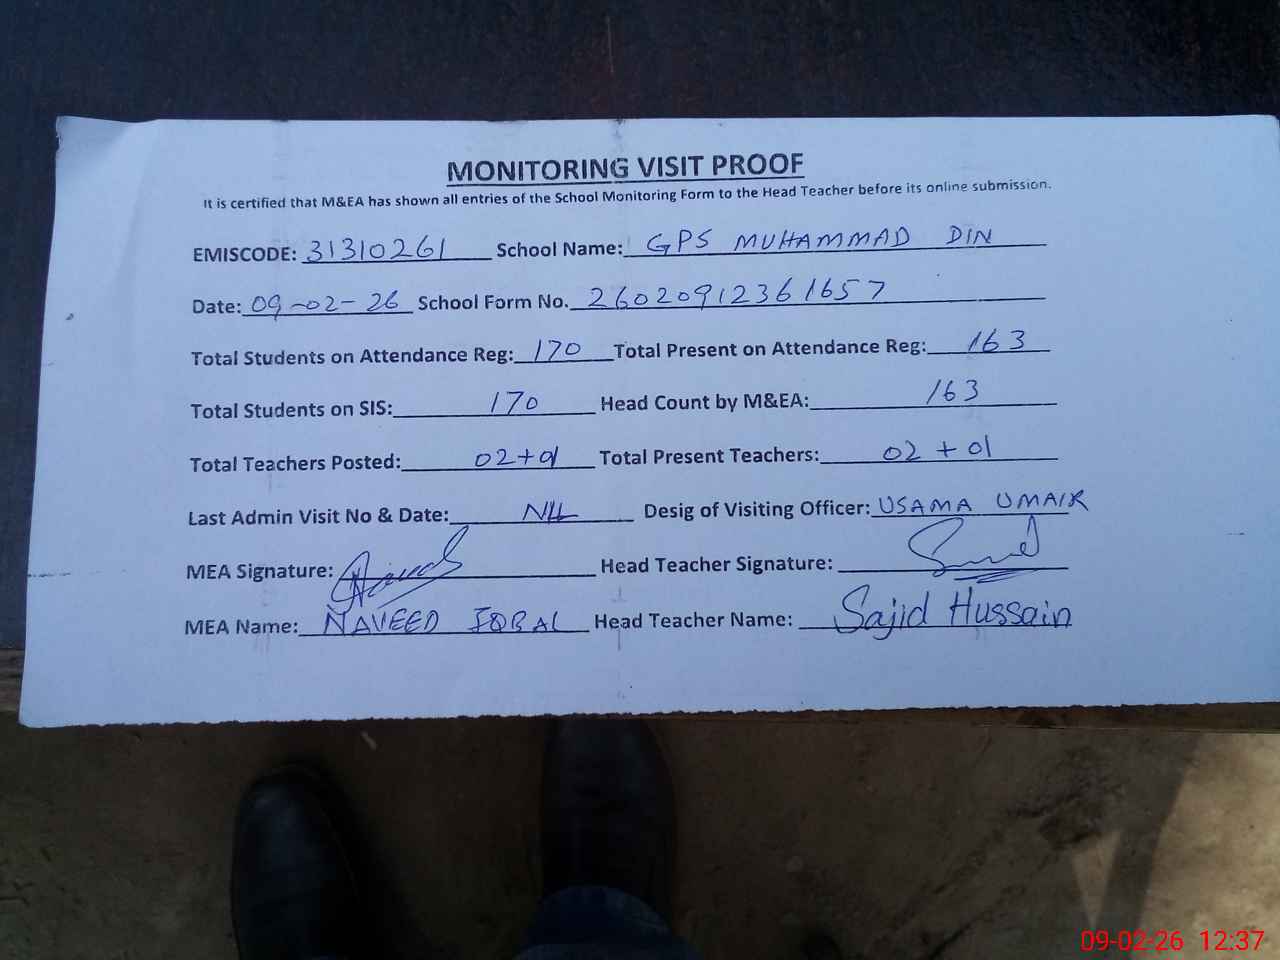 MONITORING VISIT PROOF
It is certified that M&EA has shown all entries of the School Monitoring Form to the Head Teacher before its online submission.
EMISCODE: 31310261 School Name: GPS MUHAMMAD DIN
Date: 09-02-26 School Form No. 26020912361657
Total Students on Attendance Reg: 170 Total Present on Attendance Reg: 163
Total Students on SIS: 170 Head Count by M&EA: 163
Total Teachers Posted: 02+01 Total Present Teachers: 02+01
Last Admin Visit No & Date: NIL Desig of Visiting Officer: USAMA UMAIR
MEA Signature: Head Teacher Signature:
MEA Name: NAVEED IQBAL Head Teacher Name: Sajid Hussain
09-02-26 12:37